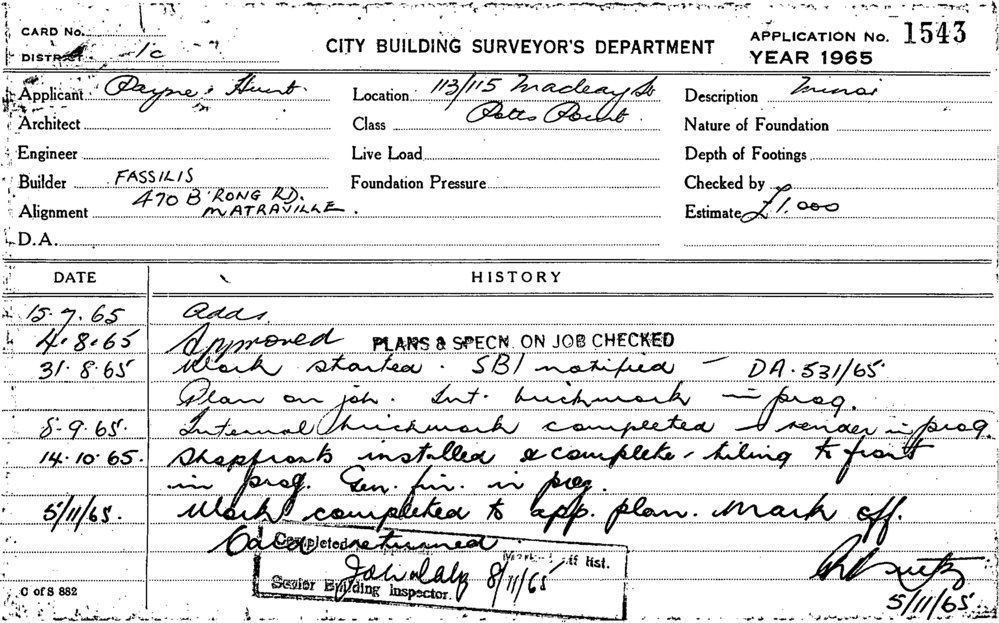 CARD No.
DISTRICT 1c
CITY BUILDING SURVEYOR'S DEPARTMENT
APPLICATION No. 1543
YEAR 1965
Applicant Payne & Hunt. Location 113/115 Macleay St Description Minor
Architect Class Potts Point. Nature of Foundation
Engineer Live Load Depth of Footings
Builder FASSILIS Foundation Pressure Checked by
470 B'RONG RD.
Alignment MATRAVILLE. Estimate £1,000
D.A.
DATE HISTORY
15.7.65 Adds.
4.8.65 Approved PLANS & SPECN. ON JOB CHECKED
31.8.65 Work started. SBI notified – DA.531/65
Plan on job. Int. brickwork in prog.
8-9.65. Internal brickwork completed & render in prog.
14.10.65. Shopfronts installed & complete - tiling to front
in prog. Gen. fin. in prog.
5/11/65. Work completed to app. plan. Mark off.
Card returned.
Completed off list.
8/11/65
Senior Building Inspector.
5/11/65.
C of S 882